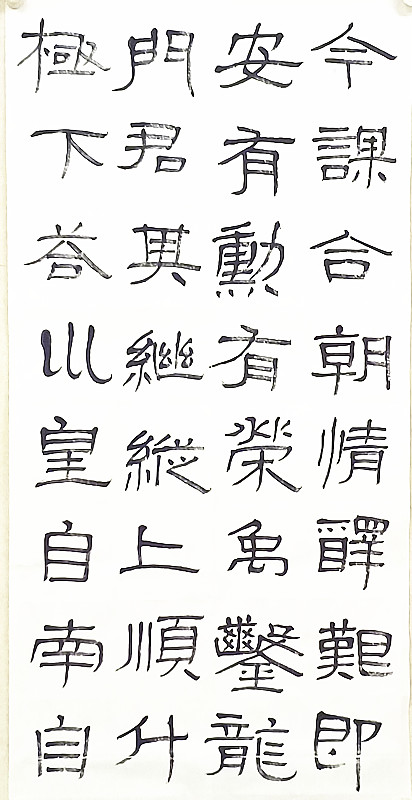 今謀合朝情醳艱即
安有勳有榮禹鑿龍
門君其繼縱上順斗
極下答巛皇自南自